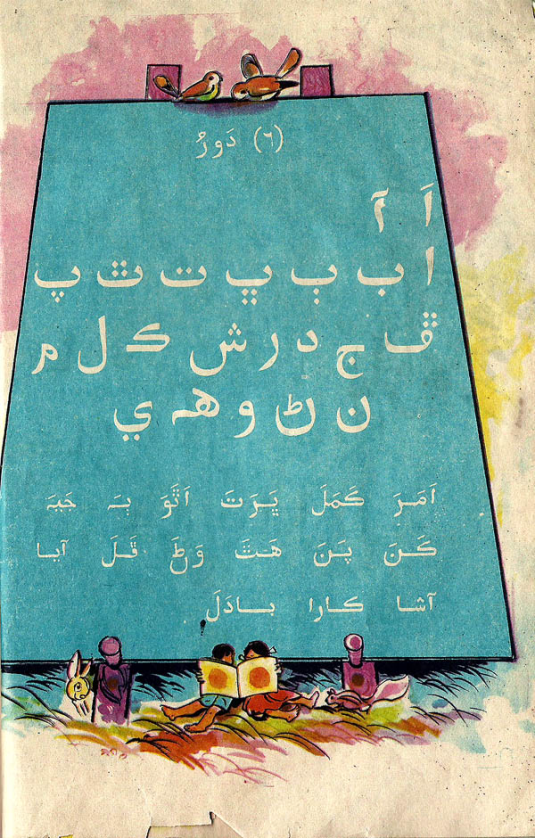 (٦) دَورُ
اَ آ
ا ب ٻ ڀ ت ٿ پ
ڦ ج د ر ش ڪ ل م
ن ڻ و هه ي
اَمَرَ ڪَمَلَ ڀَرَتَ اَٿَوَ ٻہَ
ڪَنَ پَنَ هَٿَ وَڻَ ڦَلَ آيا
آشا ڪارا بادَلَ